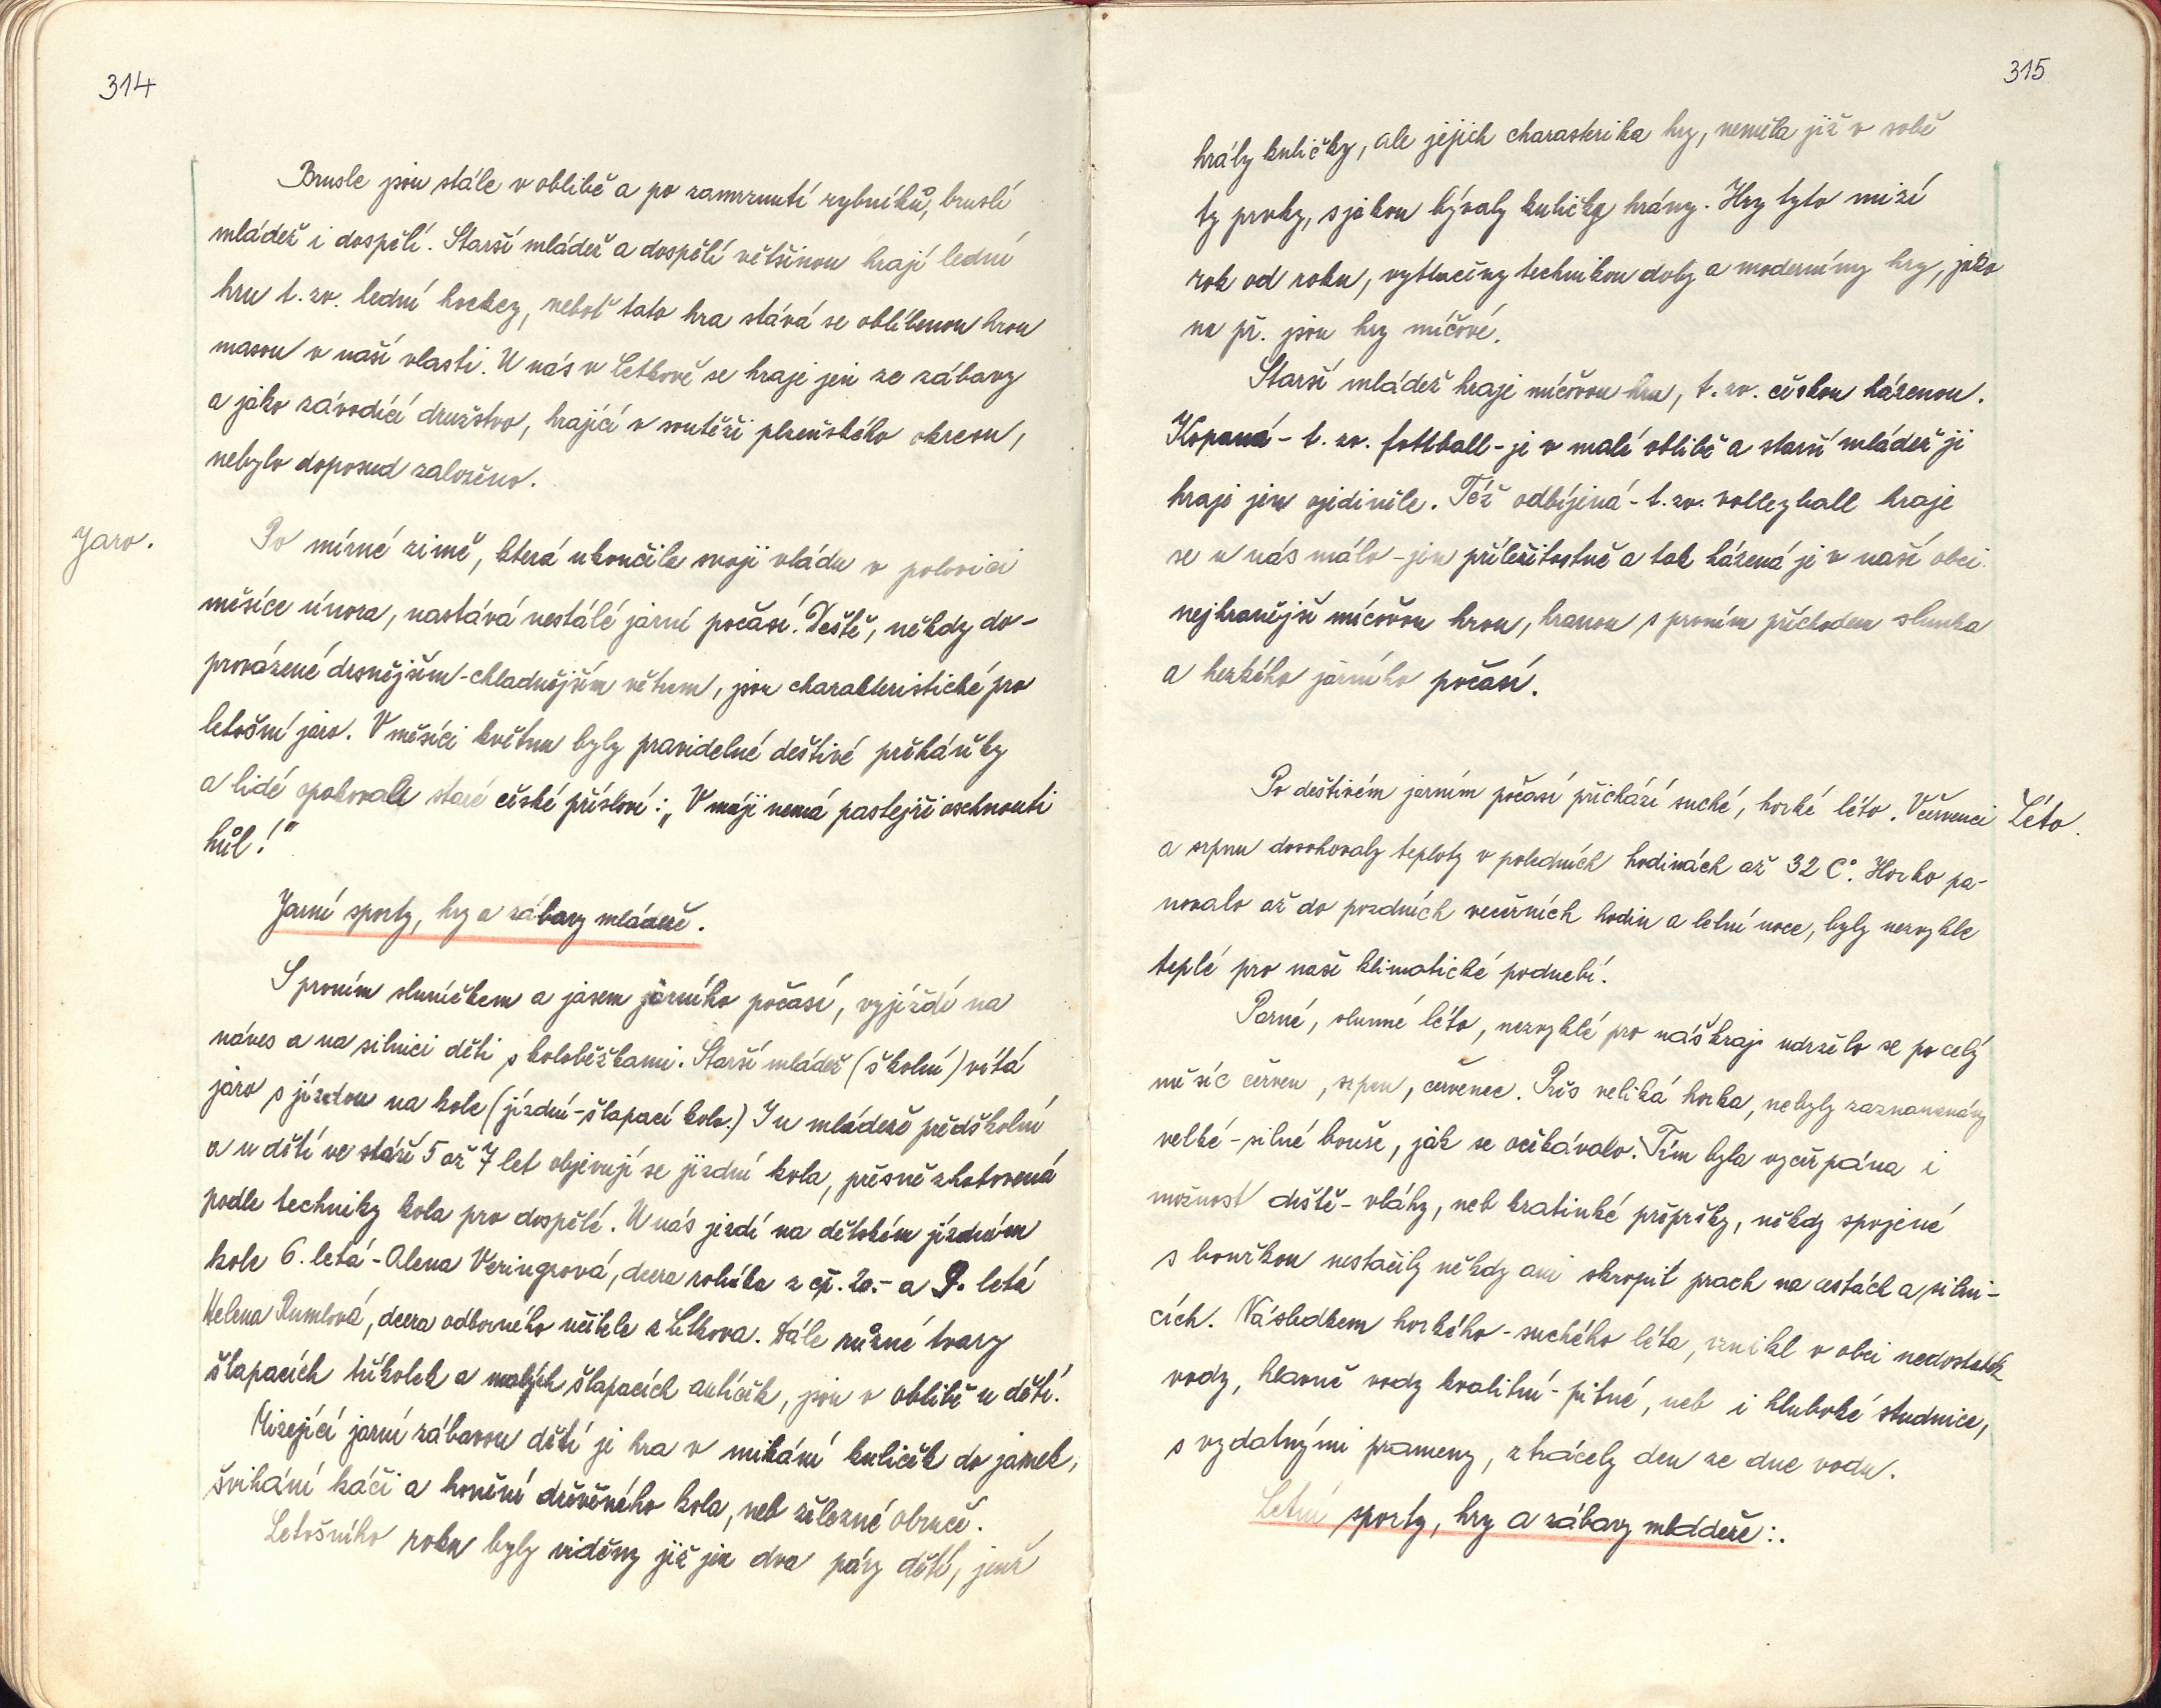 314
Brusle jsou stále v oblibě a po zamrznutí rybníků, bruslí
mládež i dospělí. Starší mládež a dospělí většinou hrají lední
hru t. zv. lední hockey, neboť tato hra stává se oblíbenou hrou
masou v naší vlasti. U nás v Letkově se hraje jen ze zábavy
a jako závodící družstvo, hrající v soutěži plzeňského okresu,
nebylo doposud založeno.
Jaro.
Po mírné zimě, která ukončila svoji vládu v polovici
měsíce února, nastává nestálé jarní počasí. Deště, někdy do-
provázené drsnějším-chladnějším větrem, jsou charakteristické pro
letošní jaro. V měsíci květnu byly pravidelné deštivé přeháňky
a lidé opakovali staré české přísloví: „V máji nemá pastejři oschnouti
hůl!"
Jarní sporty, hry a zábavy mládeže.
S prvním sluníčkem a jasem jarního počasí, vyjíždí na
náves a na silnici děti s koloběžkami. Starší mládež (školní) vítá
jaro s jízdou na kole (jízdní-šlapací kolo.) I u mládeže předškolní
a u dětí ve stáří 5 až 7 let objevují se jízdní kola, přesně zhotovená
podle techniky kola pro dospělé. U nás jezdí na dětském jízdním
kole 6. letá - Alena Veringrová, dcera rolníka z čp. 20.- a 9. letá
Helena Rumlová, dcera odborného učitele z Letkova. Dále různé tvary
šlapacích tříkolek a malých šlapacích autíček, jsou v oblibě u dětí.
Mizející jarní zábavou dětí je hra v mikání kuliček do jamek,
švihání káči a honění dřevěného kola, neb železné obruče.
Letošního roku byly viděny již jen dva páry dětí, jenž
315
hrály kuličky, ale jejich charaskrika hry, neměla již v sobě
ty prvky, s jakou bývaly kuličky hrány. Hry tyto mizí
rok od roku, vytlačíny technikou doby a moderními hry, jako
na př. jsou hry míčové.
Starší mládež hraje míčovou hru, t. zv. českou házenou.
Kopaná - t. zv. fottball - je v malé oblibě a starší mládež ji
hraje jen ojediněle. Též odbíjená - t. zv. volleyball hraje
se u nás málo - jen příležitostně a tak házená je v naší obci
nejhranější míčovou hrou, hranou s prvním příchodem slunka
a hezkého jarního počasí.
Léto.
Po deštivém jarním počasí přichází suché, horké léto. V červenci
a srpnu dosahovaly teploty v poledních hodinách až 32 C°. Horko pa-
novalo až do pozdních večerních hodin a letní noce, byly nezvykle
teplé pro naše klimatické podnebí.
Parné, slunné léto, nezvyklé pro náš kraj udrželo se po celý
měsíc červen, srpen, červenec. Přes veliká horka, nebyly zaznamenány
velké-silné bouře, jak se očekávalo. Tím byla vyčerpána i
možnost deště - vláhy, neb kratinké přepršky, někdy spojené
s bouřkou nestačily někdy ani skropit prach na cestách a silni-
cích. Následkem horkého - suchého léta, vznikl v obci nedostatek
vody, hlavně vody kvalitní - pitné, neb i hluboké studnice,
s vydatnými prameny, ztrácely den ze dne vodu.
Letní sporty, hry a zábavy mládeže:.